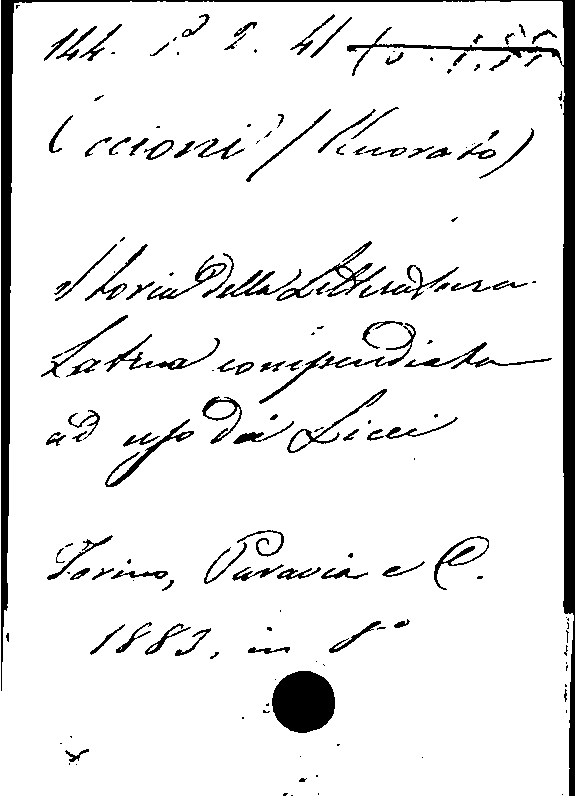 144. P. 2. 41
Occioni / (Onorato)
Storia della Letteratura
Latina compendiata
ad uso dei Licei
Torino, Paravia e C.
1883. in 8°